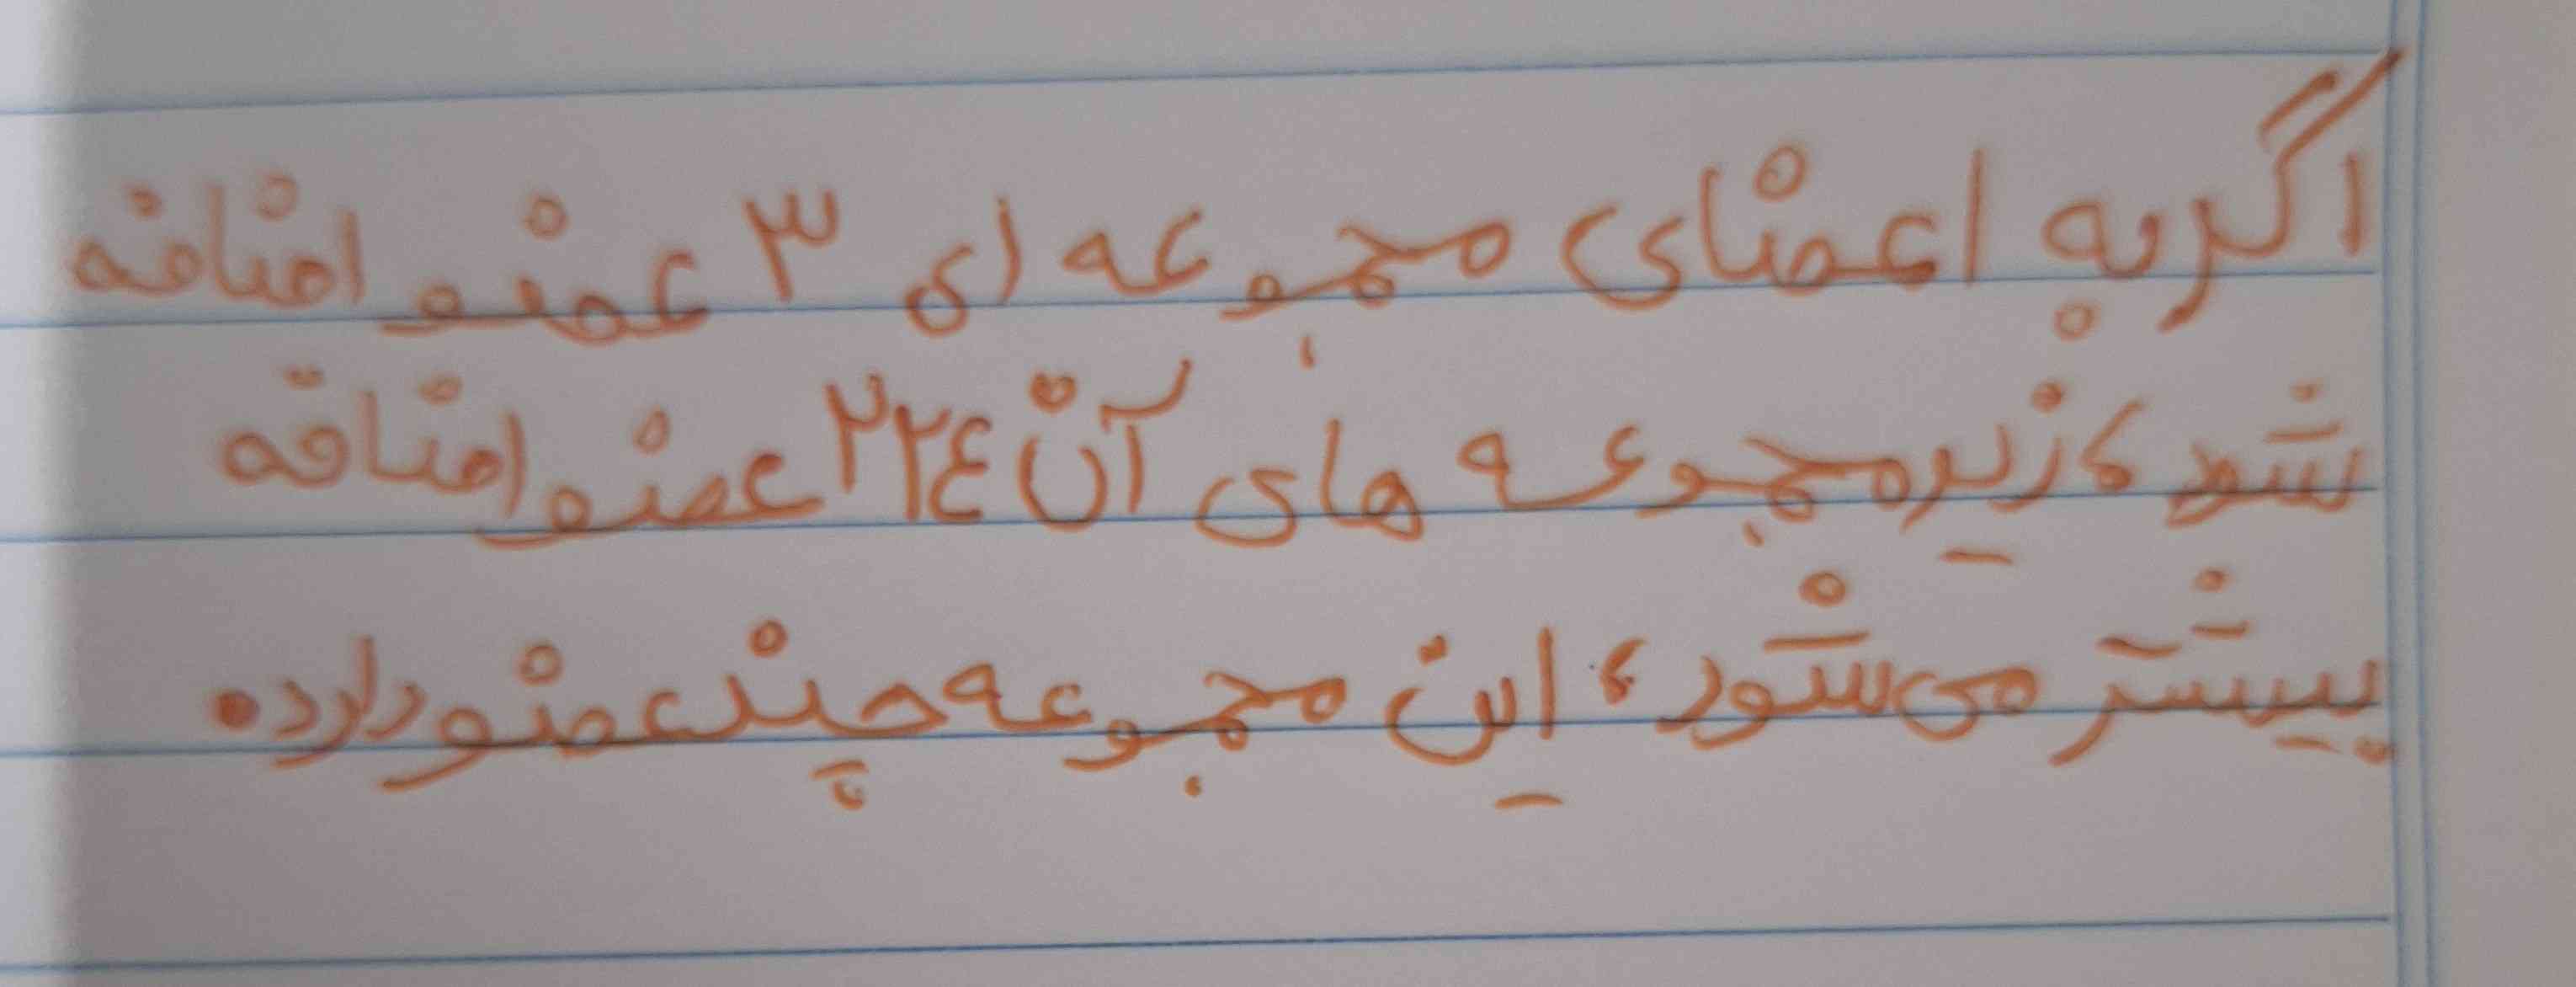 اگر به اعضای مجموعه ای ۳ عضو اضافه
شود، زیرمجموعه های آن ۲۲٤ عضو اضافه
بیشتر می شود، این مجموعه چند عضو دارد.